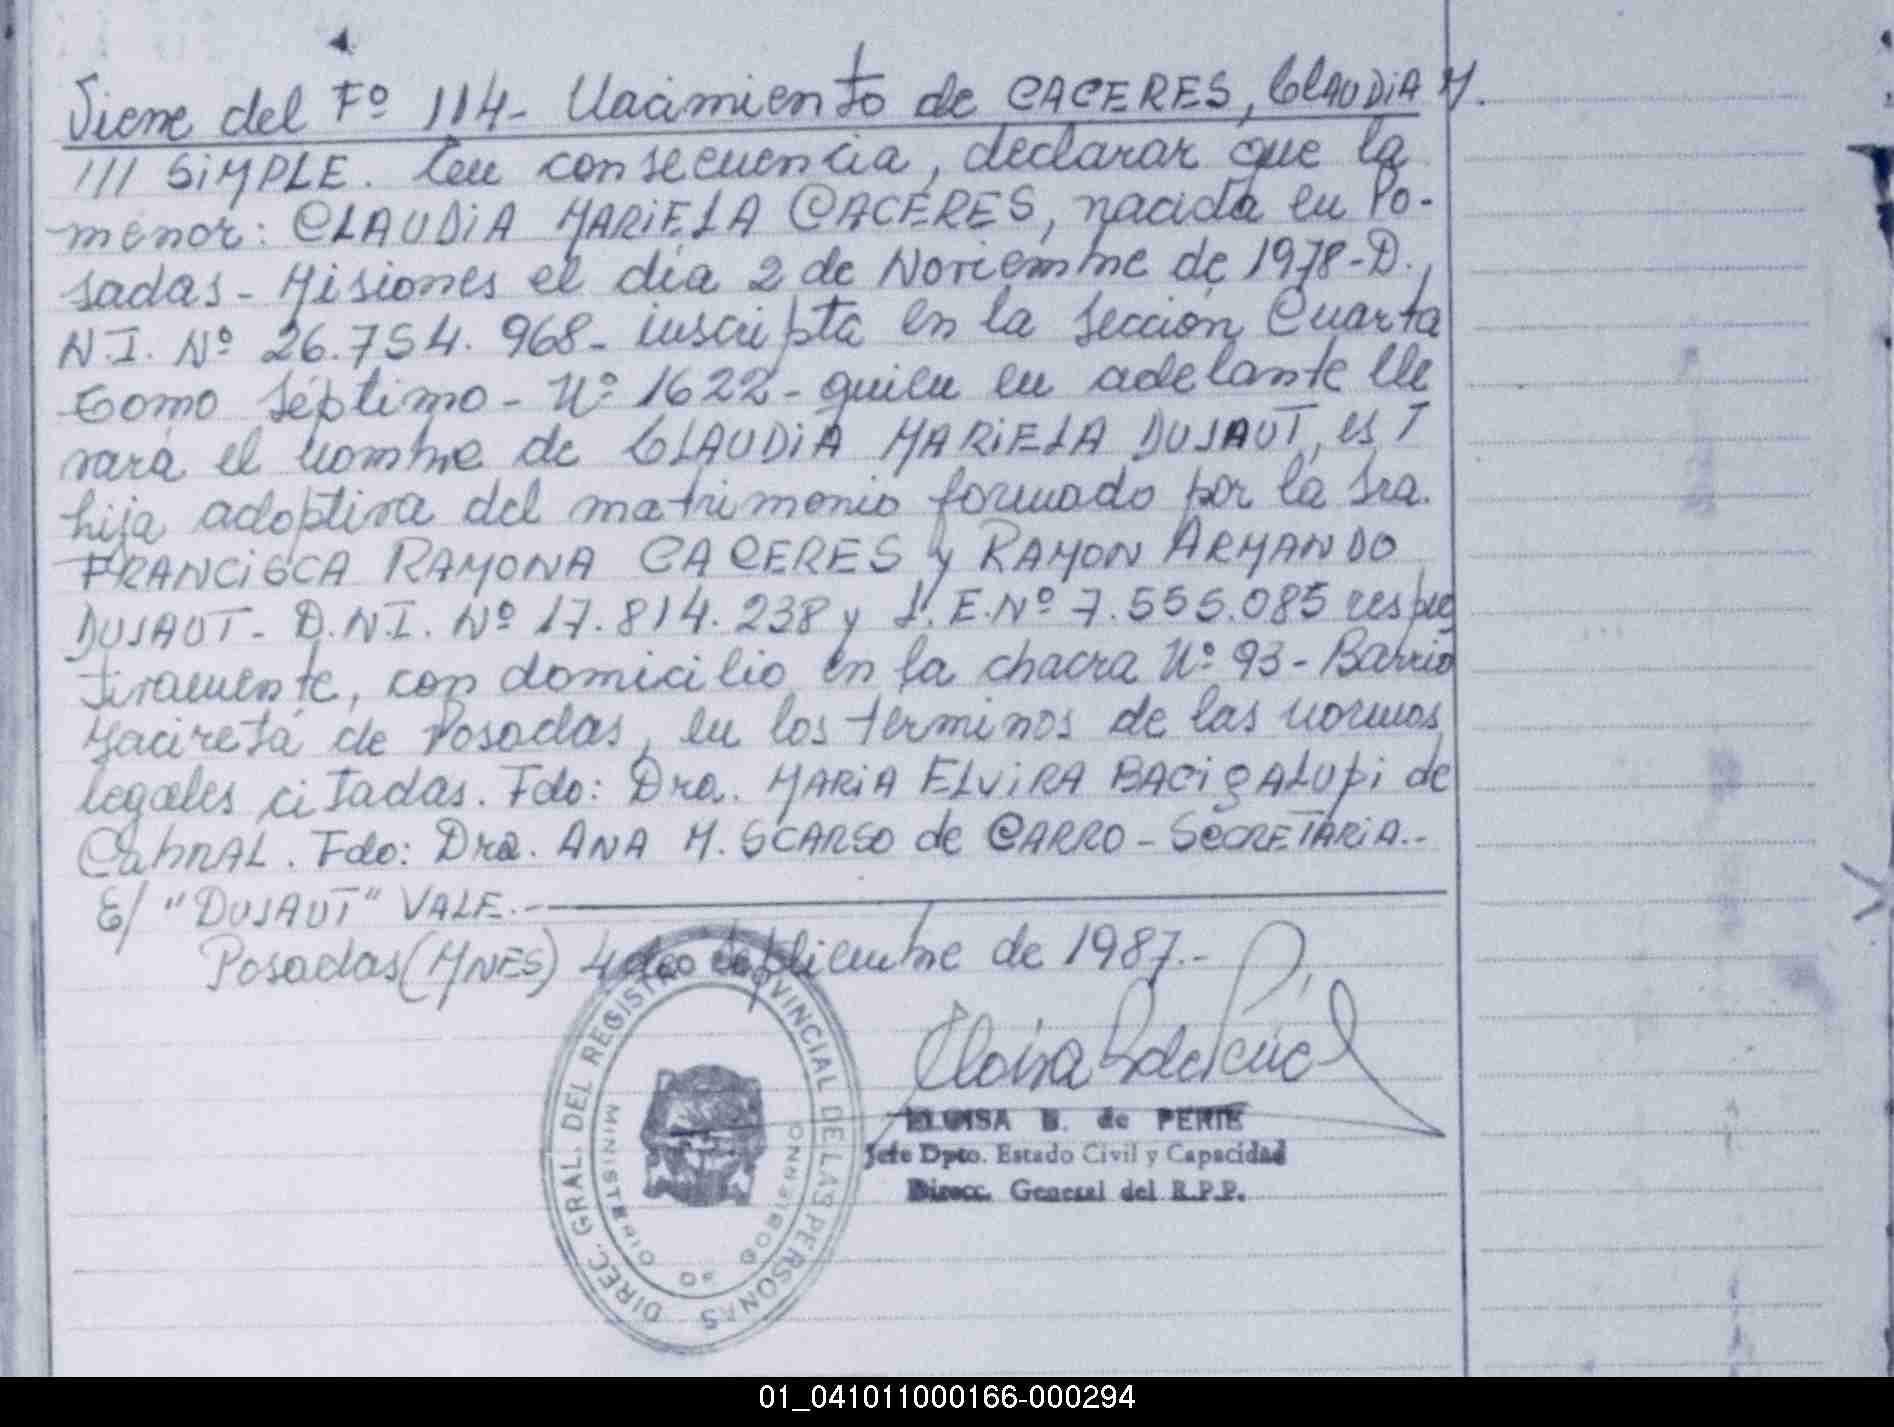 Viene del Fº 114- Nacimiento de CACERES, CLAUDIA M.
/// SIMPLE. Con consecuencia, declarar que la
menor: CLAUDIA MARIELA CACERES, nacida en Po-
sadas - Misiones el día 2 de Noviembre de 1978-D.
N.I. Nº 26.754.968- inscripta en la Sección Cuarta
Tomo Séptimo - Nº 1622 - quien en adelante lle
vará el nombre de CLAUDIA MARIELA DUSAUT, es
hija adoptiva del matrimonio formado por la Sra.
FRANCISCA RAMONA CACERES y RAMON ARMANDO
DUSAUT - D.N.I. Nº 17.814.238 y L.E.Nº 7.555.085 respec
tivamente, con domicilio en la chacra Nº 93 - Barrio
Yaciretá de Posadas, en los terminos de las normas
legales citadas. Fdo: Dra. MARIA ELVIRA BACIGALUPI de
CABRAL. Fdo: Dra. ANA M. SCARSO de CARRO - SECRETARIA.-
E/ "DUSAUT" VALE.-
Posadas (MNES) 4 de Septiembre de 1987.-
DIREC. GRAL. DEL REGISTRO PROVINCIAL DE LAS PERSONAS
MINISTERIO DE GOBIERNO
Eloisa B de Perié
ELOISA B. de PERIE
Jefe Dpto. Estado Civil y Capacidad
Direcc. General del R.P.P.
01_041011000166-000294